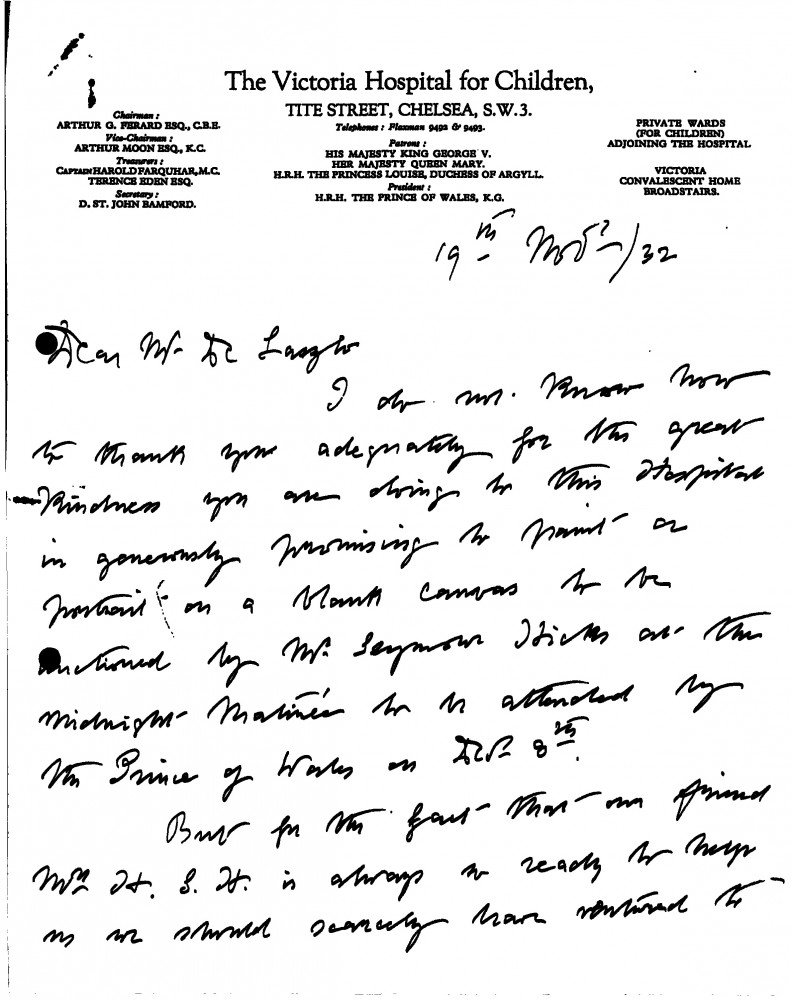 The Victoria Hospital for Children,
TITE STREET, CHELSEA, S.W.3.
Telephones : Flaxman 9492 & 9493.
Patrons :
HIS MAJESTY KING GEORGE V.
HER MAJESTY QUEEN MARY.
H.R.H. THE PRINCESS LOUISE, DUCHESS OF ARGYLL.
President :
H.R.H. THE PRINCE OF WALES, K.G.
Chairman :
ARTHUR G. FERARD ESQ., C.B.E.
Vice-Chairman :
ARTHUR MOON ESQ., K.C.
Treasurers :
CAPTAIN HAROLD FARQUHAR, M.C.
TERENCE EDEN ESQ.
Secretary :
D. ST. JOHN BAMFORD.
PRIVATE WARDS
(FOR CHILDREN)
ADJOINING THE HOSPITAL
VICTORIA
CONVALESCENT HOME
BROADSTAIRS.
19th Novr/32
Dear Mr De Laszlo
I do not know how
to thank you adequately for the great
kindness you are doing to this Hospital
in generously promising to paint a
portrait on a blank canvas to be
auctioned by Mr. Seymour Hicks at the
Midnight Matinée to be attended by
the Prince of Wales on Dec 8th.
But for the fact that our friend
Mrs H. S. H. is always so ready to help
us we should scarcely have ventured to